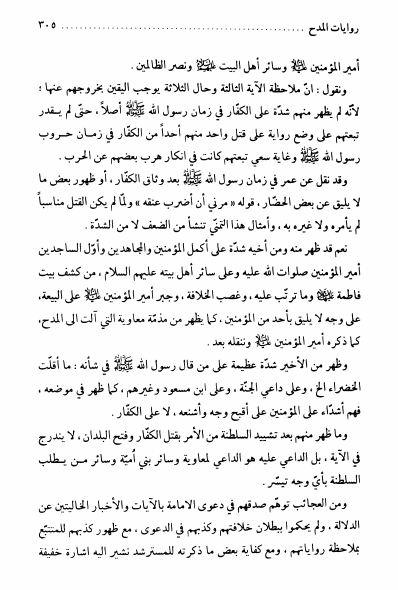 روايات المدح ........................................ ٣٠٥
أمير المؤمنين ﷺ وسائر أهل البيت ﷺ ونصر الظالمين .
ونقول : انّ ملاحظة الآية الثالثة وحال الثلاثة يوجب اليقين بخروجهم عنها ؛
لأنّه لم يظهر منهم شدّة على الكفّار في زمان رسول الله ﷺ أصلاً ، حتّى لم يـقدر
تبعتهم على وضع رواية على قتل واحد منهم أحداً من الكفّار في زمـان حـروب
رسول الله ﷺ وغاية سعي تبعتهم كانت في انكار هرب بعضهم عن الحرب .
وقد نقل عن عمر في زمان رسول الله ﷺ بعد وثاق الكفّار ، أو ظهور بعض ما
لا يليق عن بعض الحضّار ، قوله « مرني أن أضرب عنقه » ولمّا لم يكن القتل مناسباً
لم يأمره ولا غيره به ، وأمثال هذا التمنّي تنشأ من الضعف لا من الشدّة .
نعم قد ظهر منه ومن أخيه شدّة على أكمل المؤمنين والمجاهدين وأوّل الساجدين
أمير المؤمنين صلوات الله عليه وعلى سائر أهل بيته عليهم السلام ، من كشف بيت
فاطمة ﷺ وما ترتّب عليه ، وغصب الخلافة ، وجبر أمير المؤمنين ﷺ على البيعة،
على وجه لا يليق بأحد من المؤمنين ، كما يظهر من مذمّة معاوية التي آلت الى المدح،
كما ذكره أمير المؤمنين ﷺ وننقله بعد .
وظهر من الأخير شدّة عظيمة على من قال رسول الله ﷺ في شأنه : ما أقلّت
الخضراء الخ ، وعلى داعي الجنّة ، وعلى ابن مسعود وغيرهم ، كما ظهر في موضعه ،
فهم أشدّاء على المؤمنين على أقبح وجه وأشنعه ، لا على الكفّار .
وما ظهر منهم بعد تشييد السلطنة من الأمر بقتل الكفّار وفتح البلدان ، لا يندرج
في الآية ، بل الداعي عليه هو الداعي لمعاوية وسائر بني أُميّة وسائر مـن يـطلب
السلطنة بأيّ وجه تيسّر .
ومن العجائب توهّم صدقهم في دعوى الامامة بالآيات والأخبار الخاليتين عن
الدلالة ، ولم يحكموا ببطلان خلافتهم وكذبهم في الدعوى ، مع ظهور كذبهم للمتتبّع
بملاحظة رواياتهم ، ومع كفاية بعض ما ذكرته للمسترشد نشير اليه اشارة خفيفة